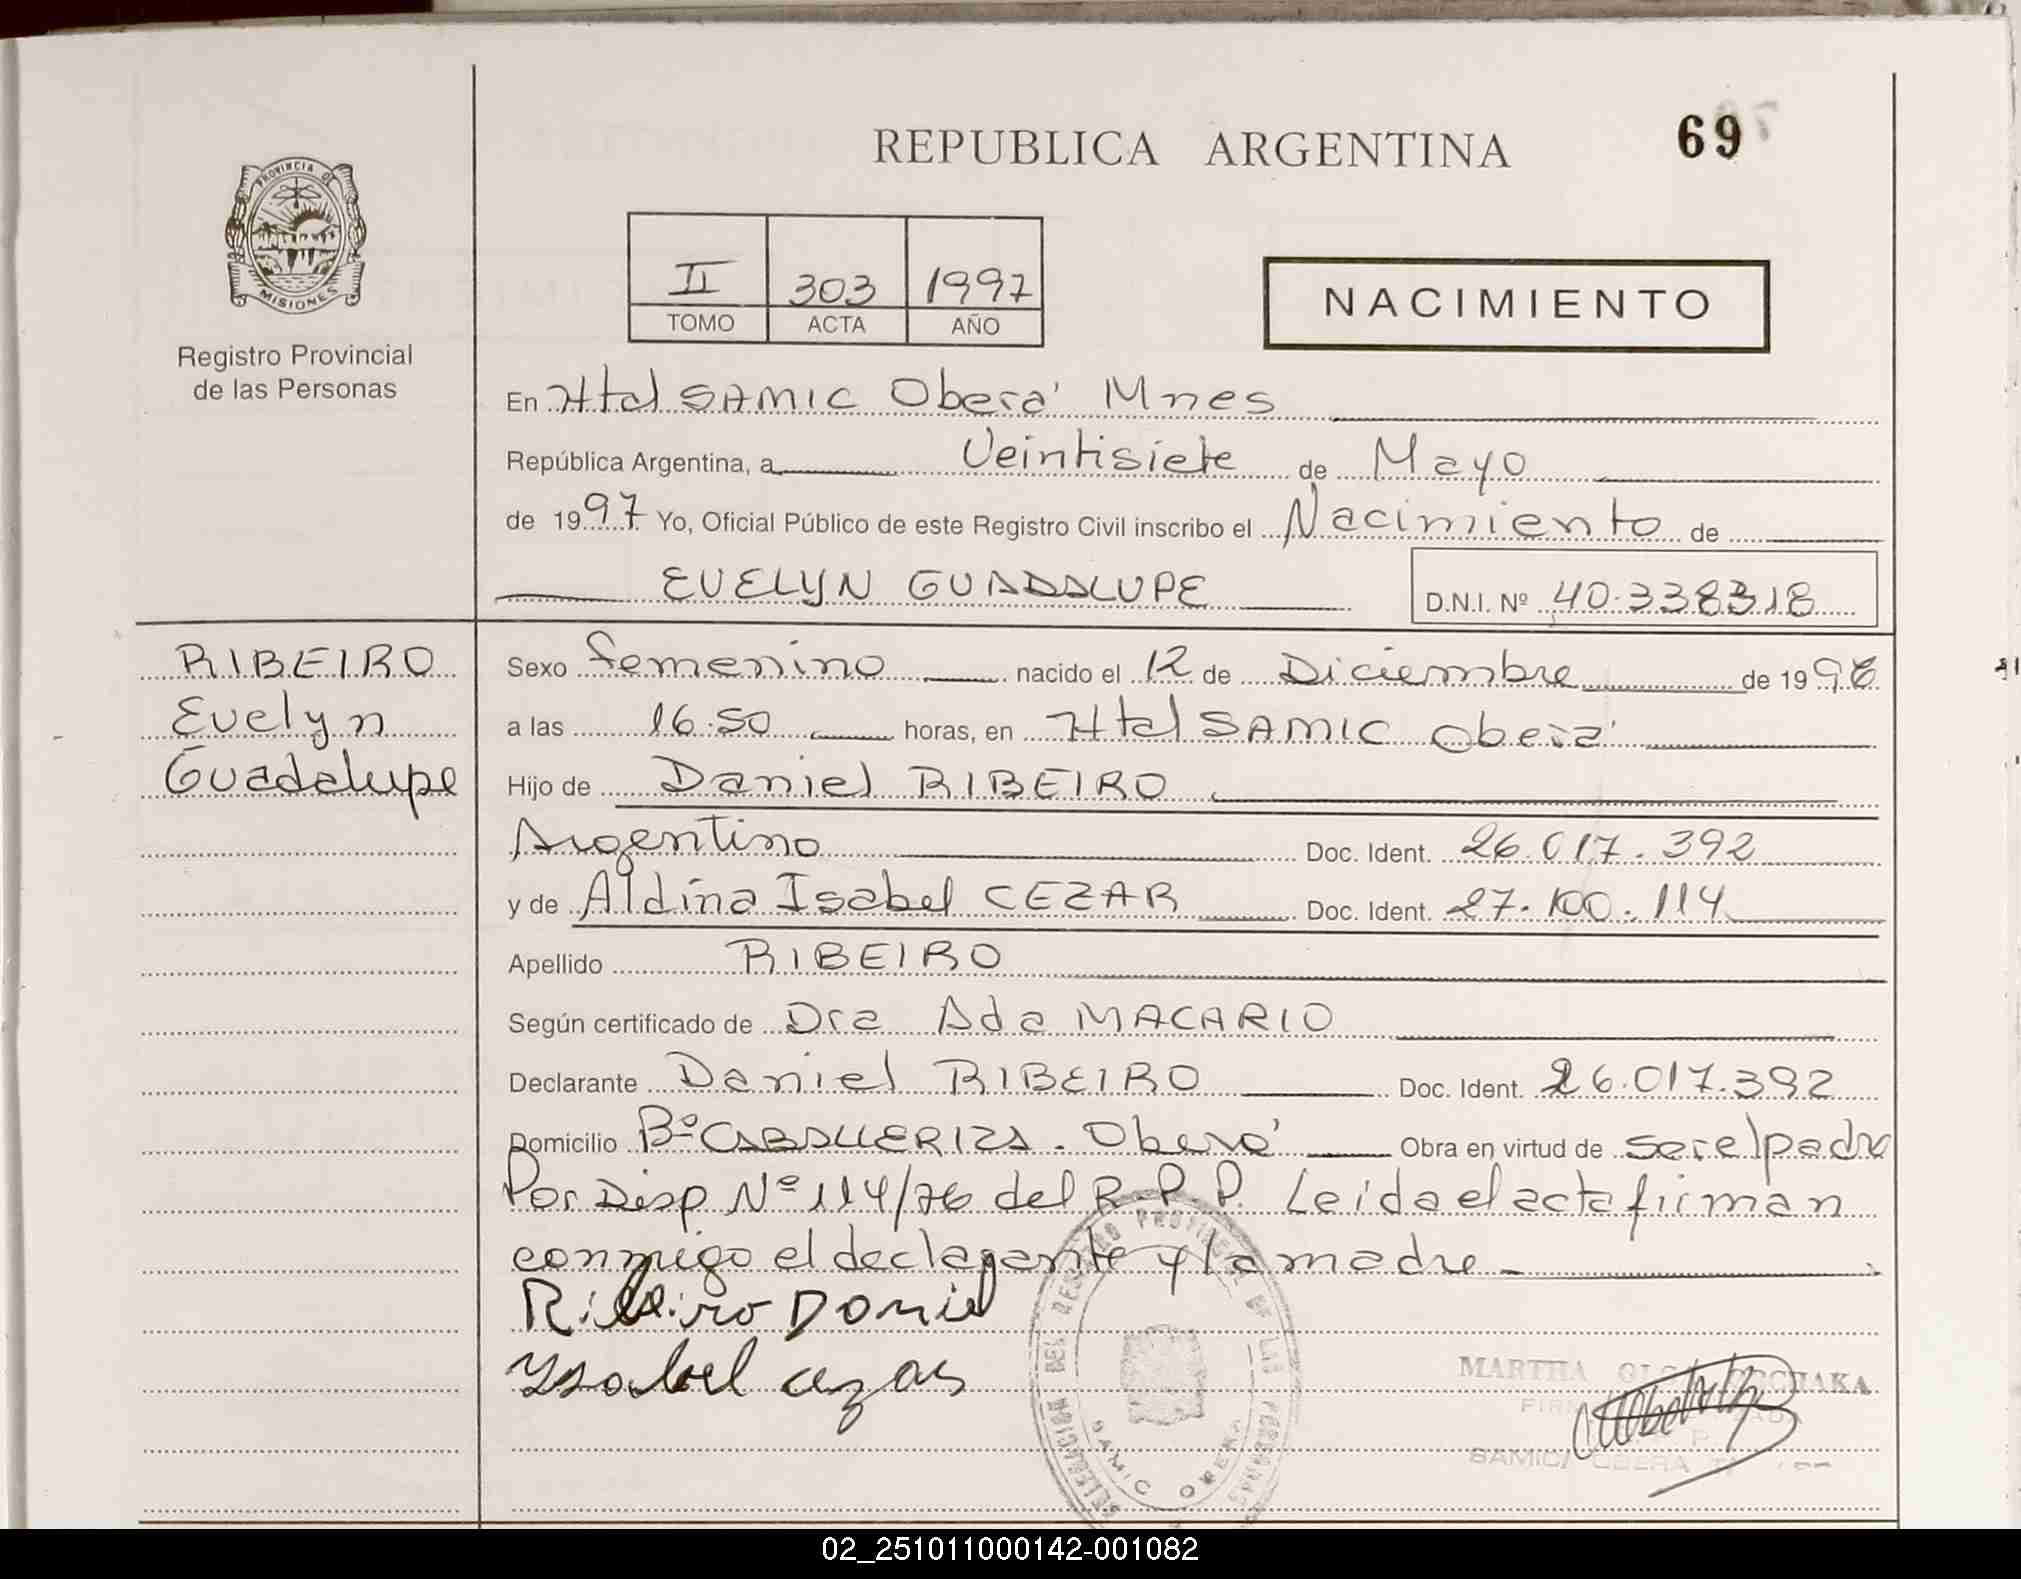 REPUBLICA ARGENTINA
69
PROVINCIA DE
MISIONES
Registro Provincial
de las Personas
II 303 1997
TOMO ACTA AÑO
NACIMIENTO
En Htal SAMIC Oberá Mnes
República Argentina, a Veintisiete de Mayo
de 1997 Yo, Oficial Público de este Registro Civil inscribo el Nacimiento de
EVELYN GUADALUPE D.N.I. Nº 40.338318
RIBEIRO
Evelyn
Guadalupe
Sexo femenino nacido el 12 de Diciembre de 1996
a las 16:50 horas, en Htal SAMIC Oberá
Hijo de Daniel RIBEIRO
Argentino Doc. Ident. 26.017.392
y de Aldina Isabel CEZAR Doc. Ident. 27.100.114
Apellido RIBEIRO
Según certificado de Dra Ada MACARIO
Declarante Daniel RIBEIRO Doc. Ident. 26.017.392
Domicilio Bº CABALLERIZA - Oberá Obra en virtud de ser el padre
Por Disp Nº 114/76 del R.P.P. Leida el acta firman
conmigo el declarante y la madre
Ribeiro Daniel
Ysabel
DEL REGISTRO PROVINCIAL DE LAS PERSONAS
SAMIC OBERA
MARTHA
SAMIC OBERA
02_251011000142-001082